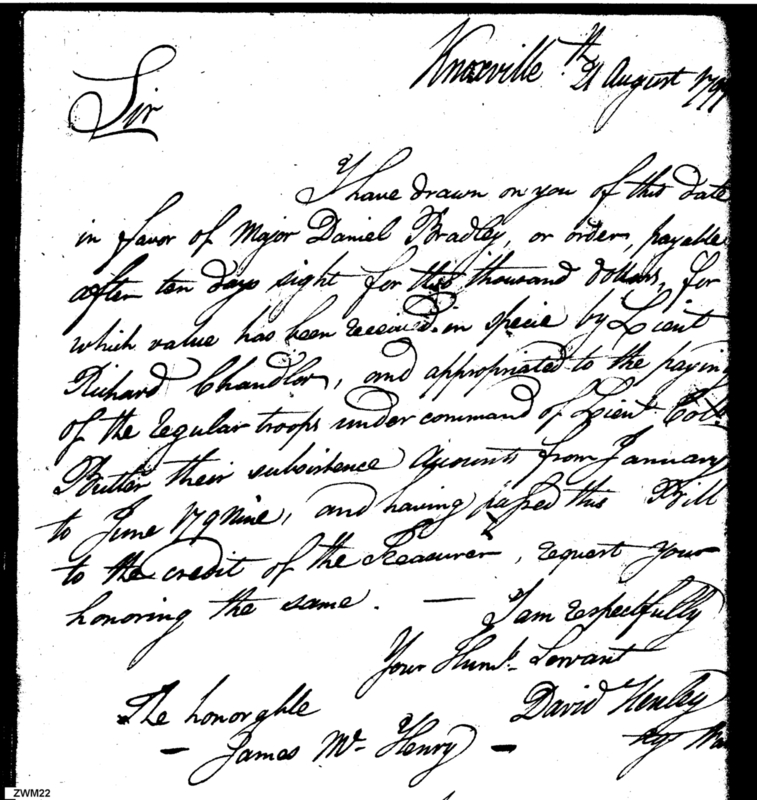 Knoxville 21th August 179
Sir
I have drawn on you of this date
in favor of Major Daniel Bradley, or order, payable
after ten days sight for two thousand dollars, for
which value has been received in specie by Lieut
Richard Chandler, and appropriated to the paying
of the regular troops under command of Lieut Colo.
Butler their subsistence Accounts from January
to June 179 nine, and having passed this Bill
to the credit of the Treasurer, request your
honoring the same. —
I am respectfully
Your Humb. Servant
The honorable David Henley
— James Mc Henry —
ZWM22